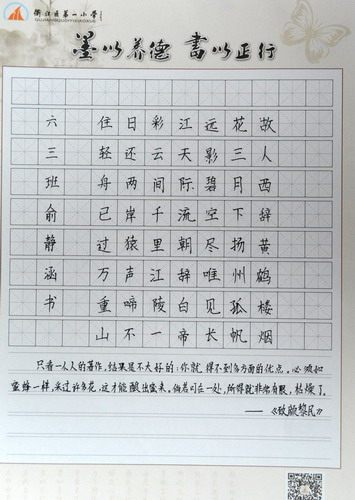 衢江区第一小学
QUJIANGQUDIYIXIAOXUE
墨以养德 書以正行
故人西辞黄鹤楼烟
花三月下扬州孤帆
远影碧空尽唯见长
江天际流朝辞白帝
彩云间千里江陵一
日还两岸猿声啼不
住轻舟已过万重山
六三班俞静涵书
只看一个人的著作，结果是不大好的：你就得不到多方面的优点。必须如
蜜蜂一样，采过许多花，这才能酿出蜜来。倘若叮在一处，所得就非常有限，枯燥了。
——《致颜黎民》